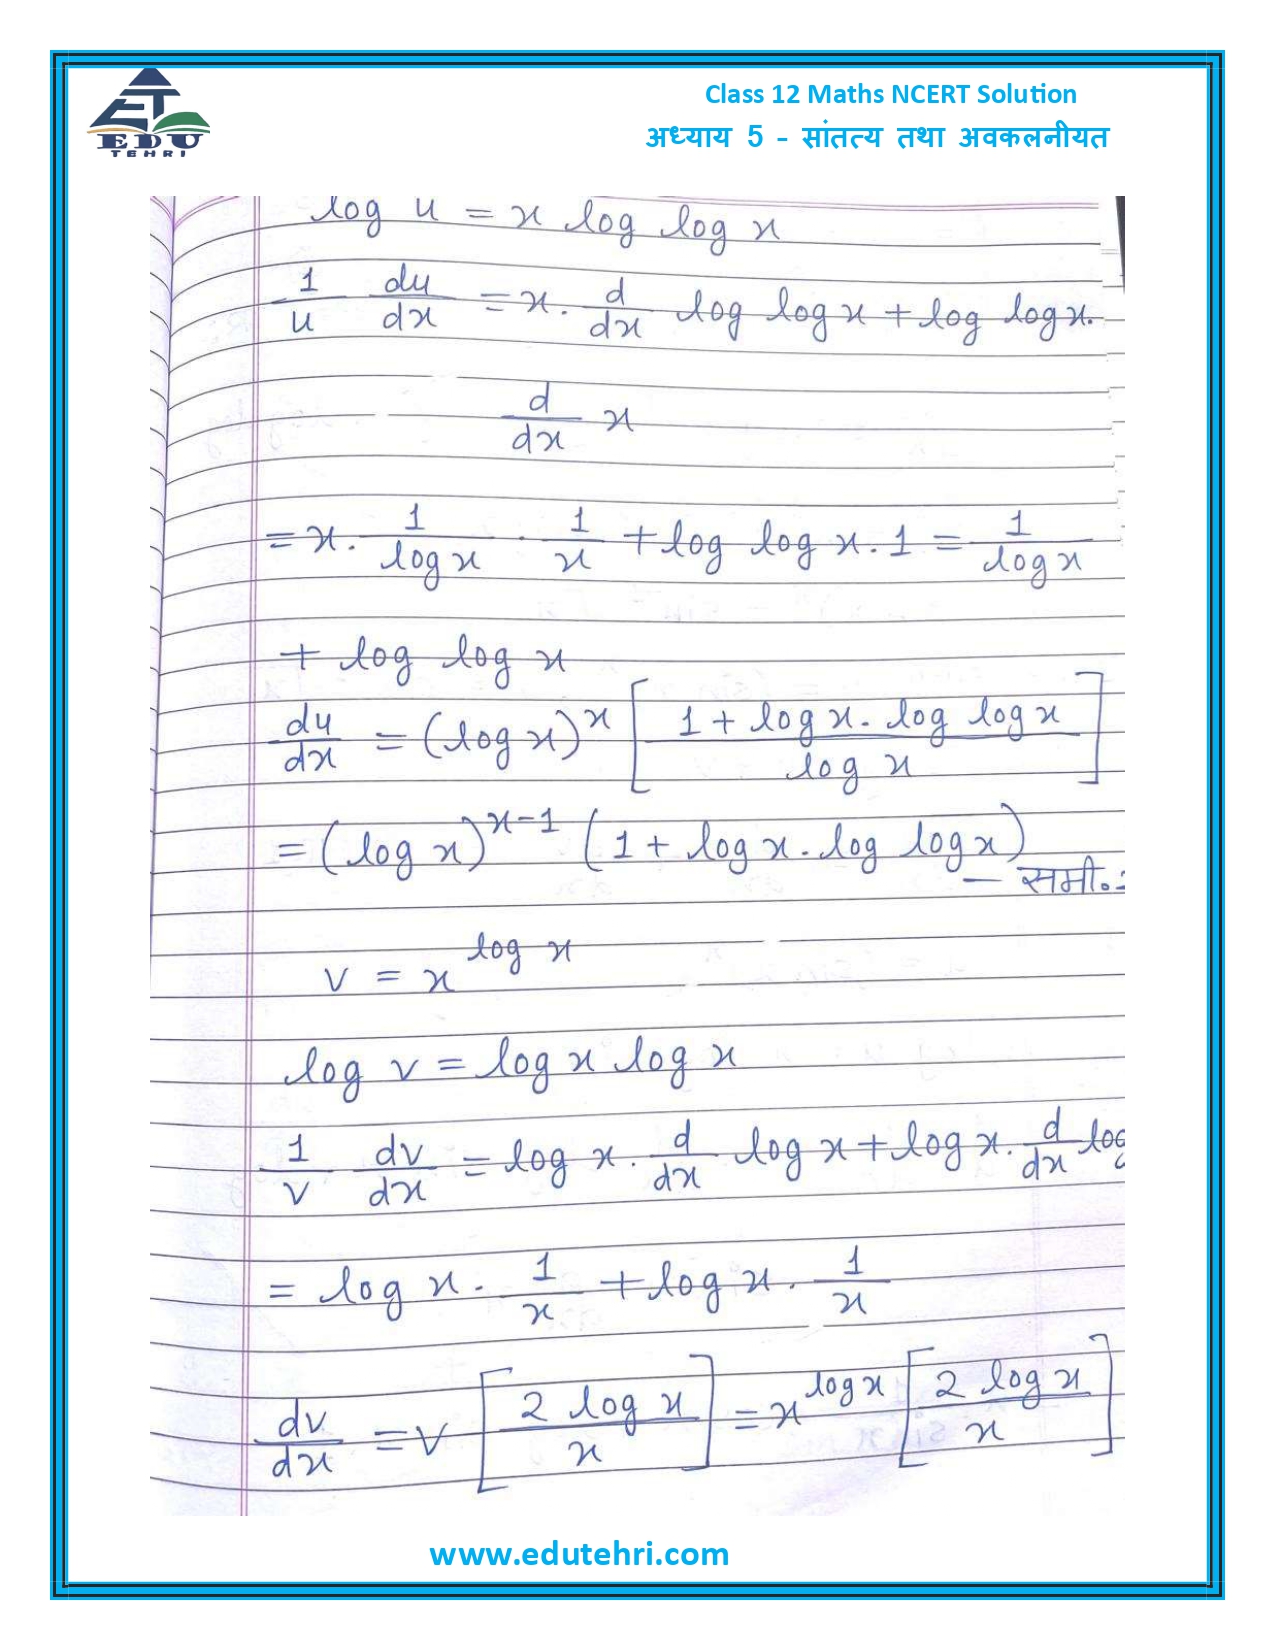 EDU
TEHRI
Class 12 Maths NCERT Solution
अध्याय 5 - सांतत्य तथा अवकलनीयत
log u = x log log x
1/u du/dx = x. d/dx log log x + log log x.
d/dx x
= x. 1/log x . 1/x + log log x . 1 = 1/log x
+ log log x
du/dx = (log x)^x [(1 + log x . log log x)/log x]
= (log x)^(x-1) (1 + log x . log log x)
— समी.
v = x^(log x)
log v = log x log x
1/v dv/dx = log x . d/dx log x + log x . d/dx log
= log x . 1/x + log x . 1/x
dv/dx = v [2 log x/x] = x^(log x) [2 log x/x]
www.edutehri.com